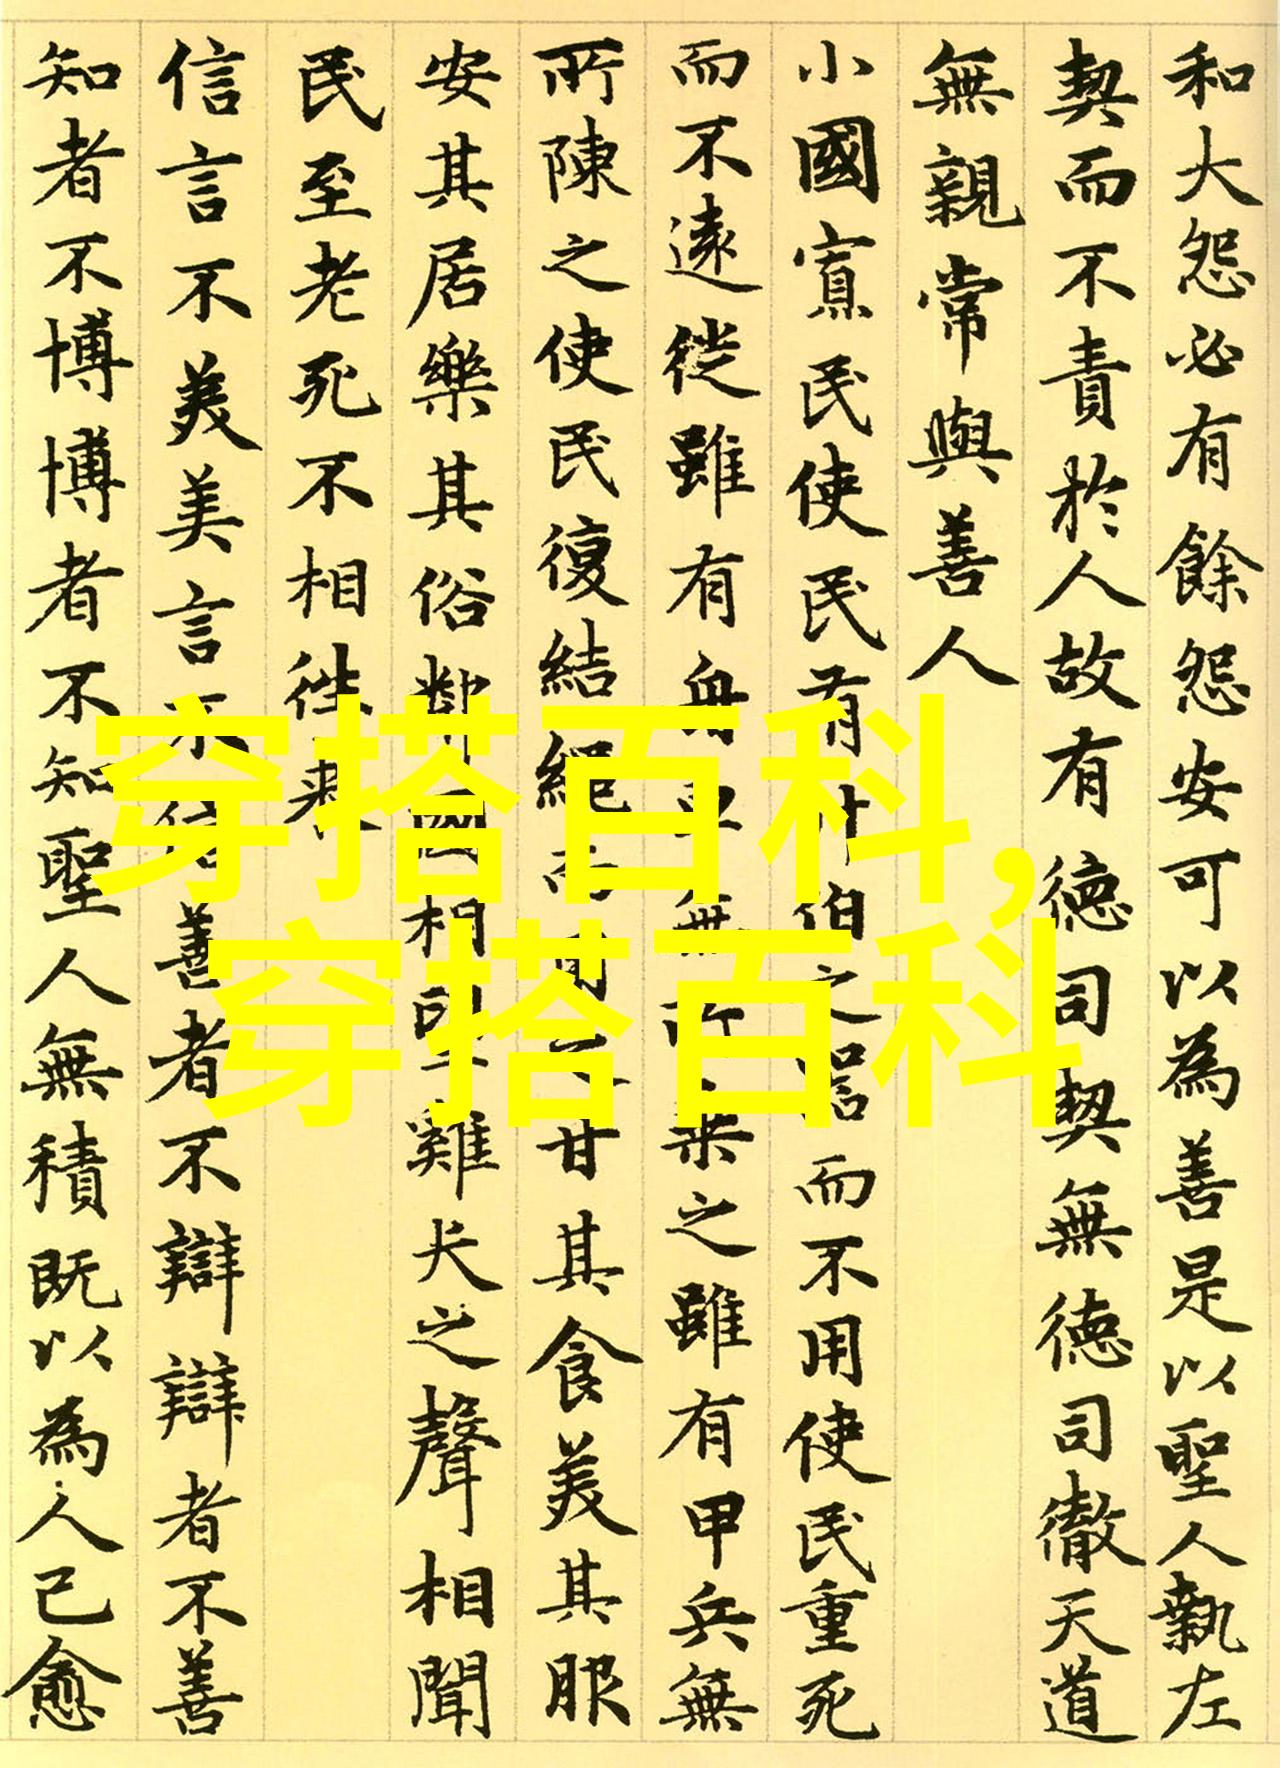 和大怨必有餘怨安可以為善是以聖人執左
契而不責於人故有德司契無德司徹天道
無親常與善人
小國寡民使民有什伯之器而不用使民重死
而不遠徙雖有舟輿無所乗之雖有甲兵無
所陳之使民復結繩而用之甘其食美其服
安其居樂其俗鄰國相望雞犬之聲相聞
民至老死不相往来
信言不美美言不信善者不辯辯者不善
知者不博博者不知聖人無積既以為人己愈
穿搭百科,
穿搭百科